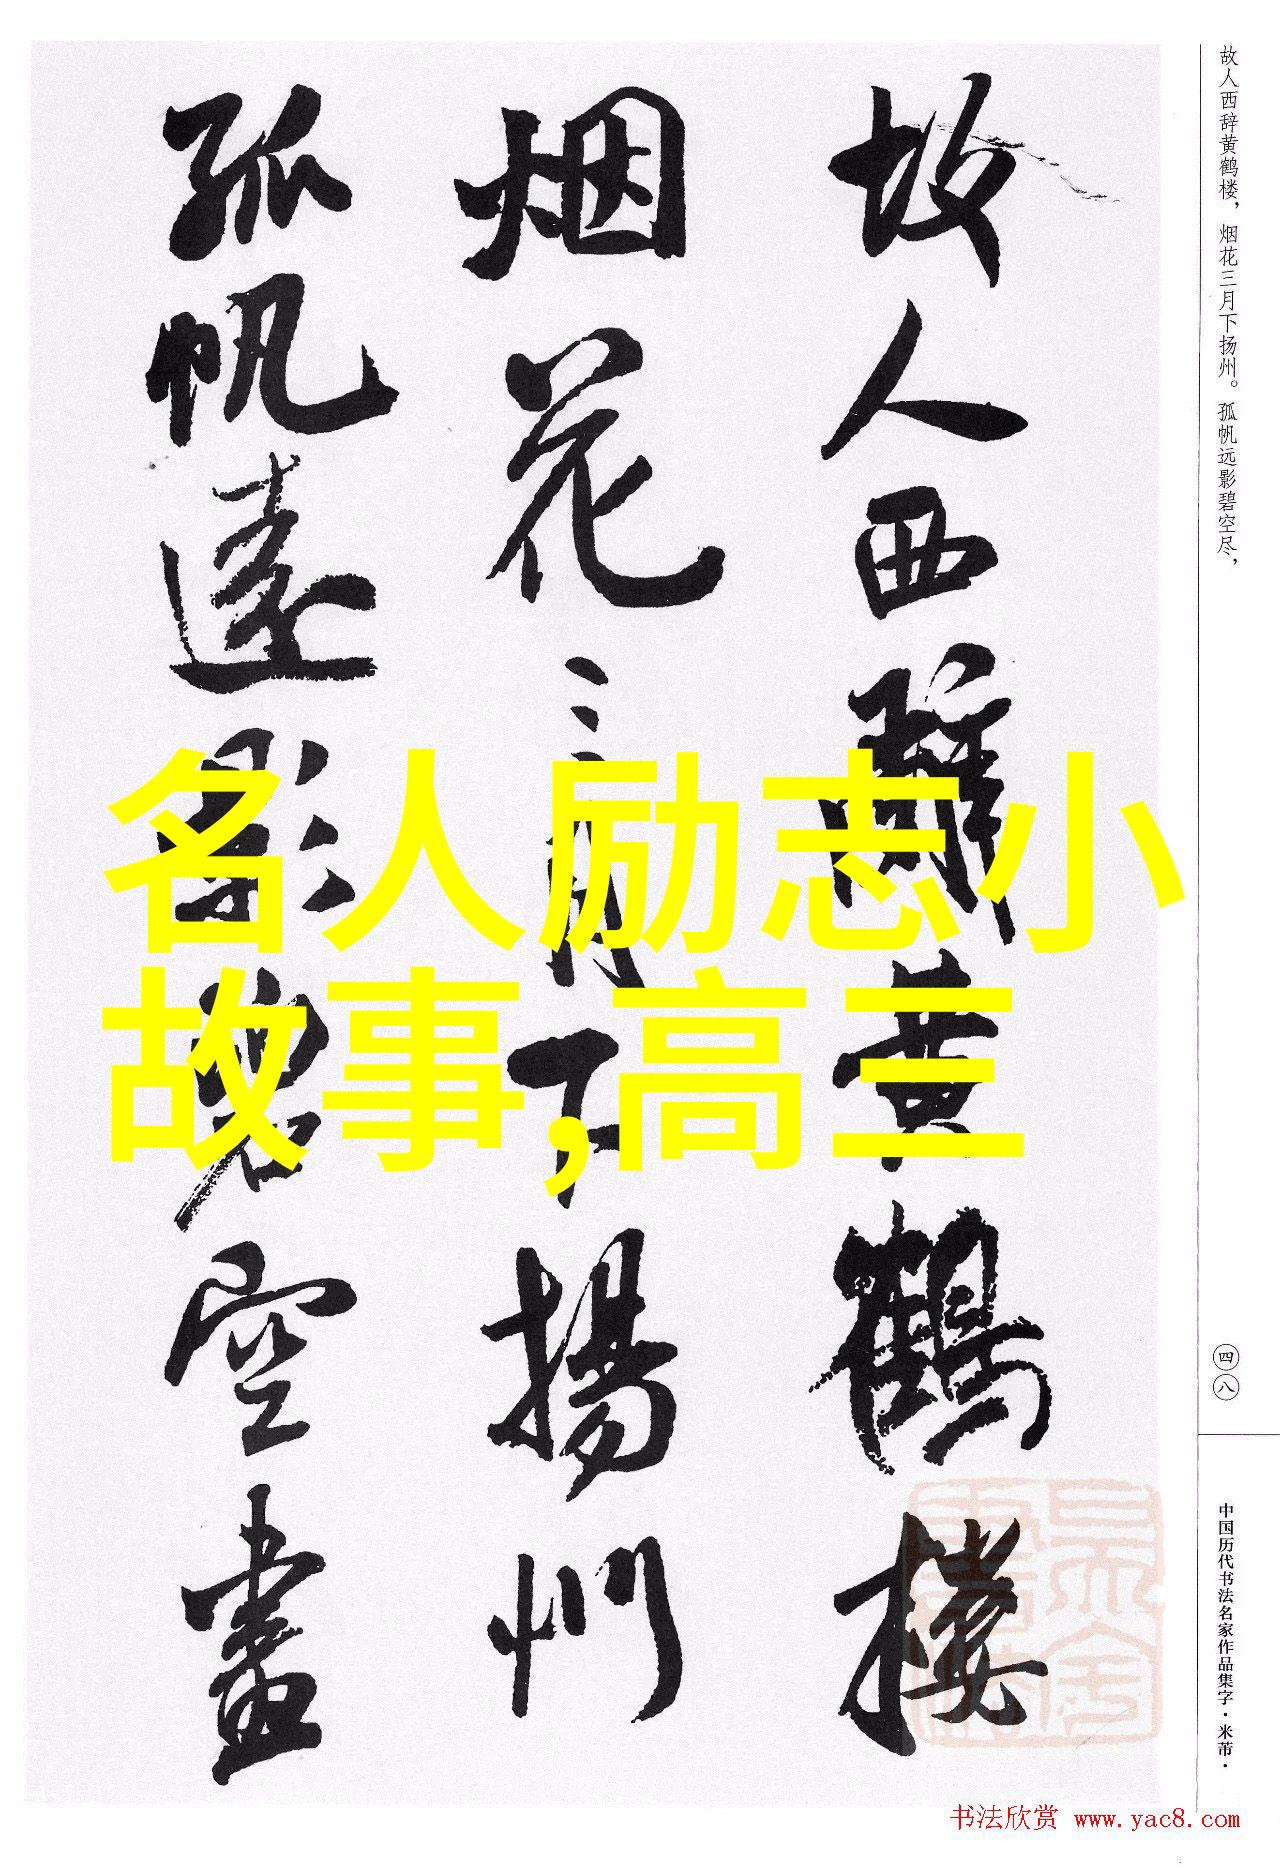 故人西辞黄鹤楼，烟花三月下扬州。孤帆远影碧空尽，
故人西辭黄鹤楼
烟花三月下揚州
孤帆遠影碧空盡
名人励志小
故事,高三
四八
中国历代书法名家作品集字·米芾·
书法欣赏 www.yac8.com